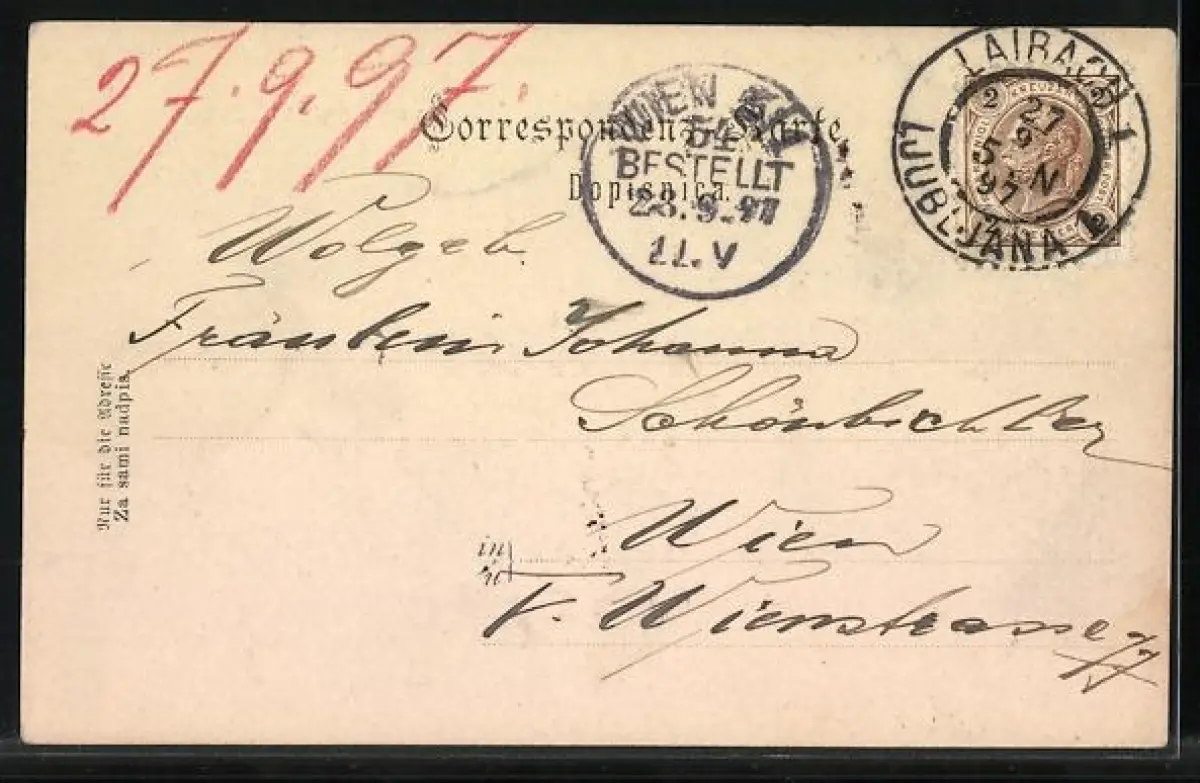 27.9.97.
Correspondenz-Karte
Dopisnica.
WIEN
54
BESTELLT
28.9.97
11.V
LAIBACH 1
27
9
5 N
97
LJUBLJANA 1
2 KREUZER 2
Wolgeb.
Fräulein Johanna
Schönbichler
Nur für die Adresse
Za sami nadpis.
in
v
Wien
V. Wienstrasse